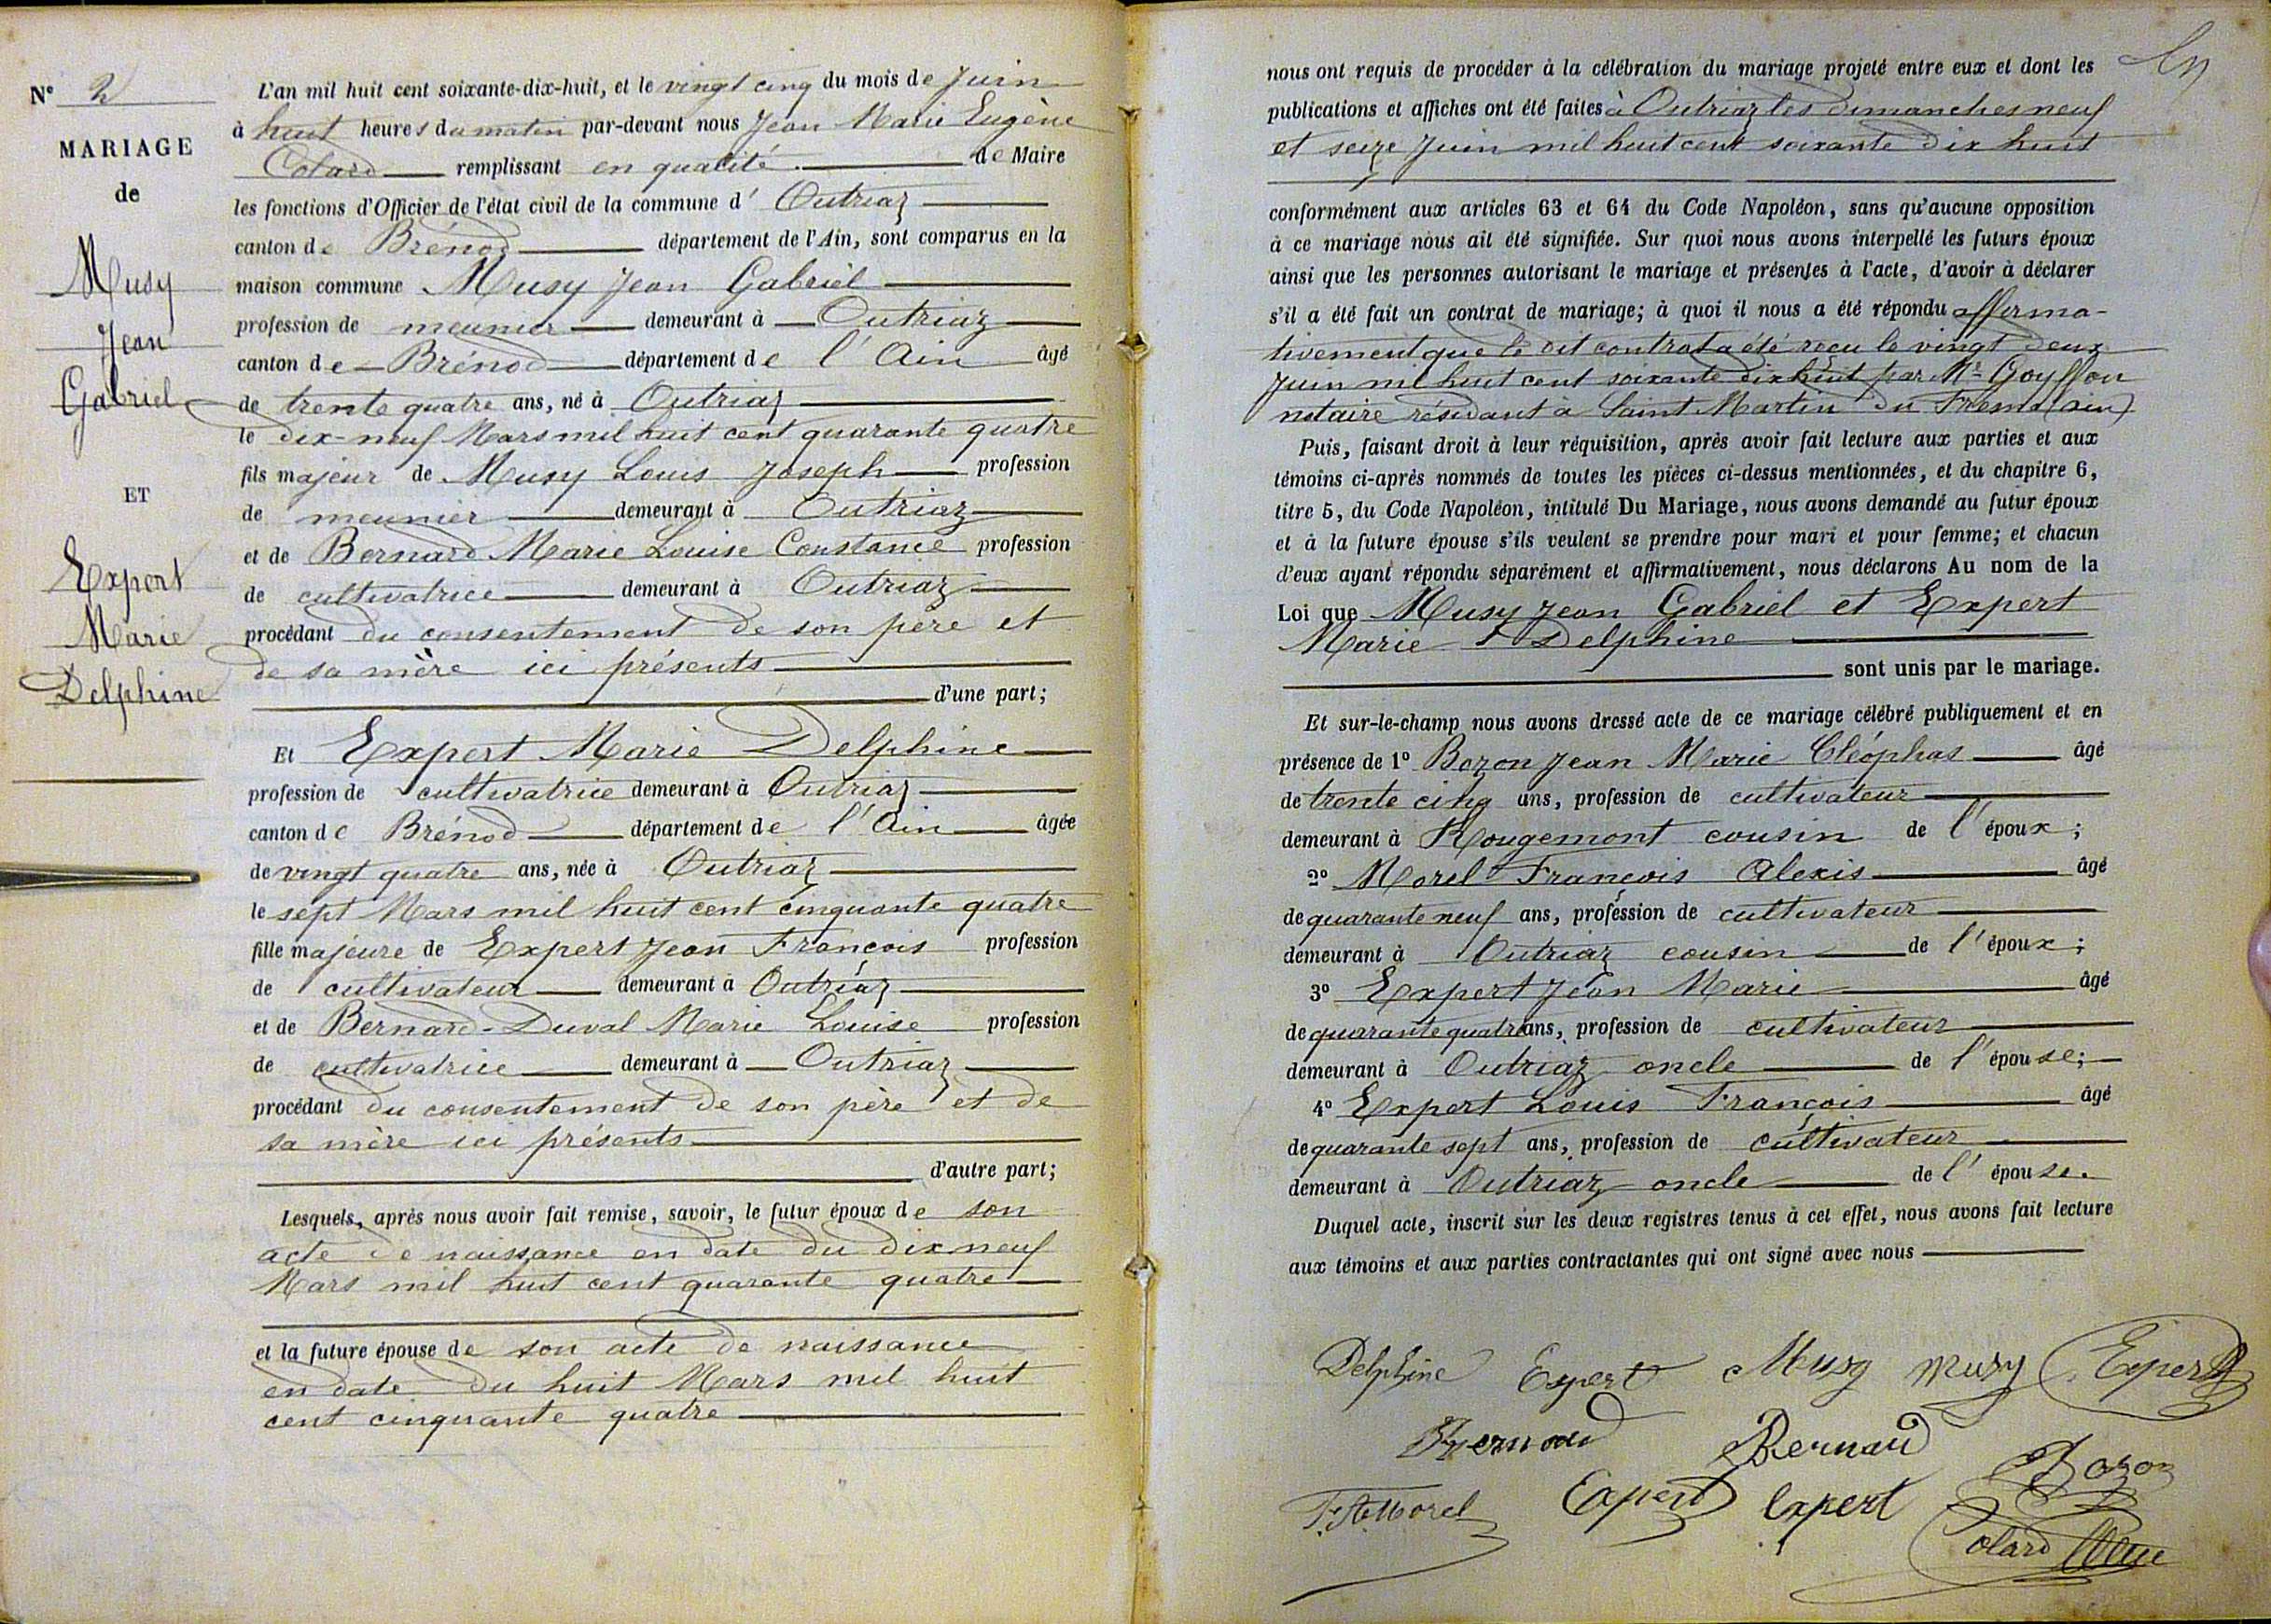 N° 2
MARIAGE
de
Musy
Jean
Gabriel
ET
Expert
Marie
Delphine
L'an mil huit cent soixante-dix-huit, et le vingt cinq du mois de Juin
à huit heures du matin par-devant nous Jean Marie Eugène
Colard remplissant en qualité de Maire
les fonctions d'Officier de l'état civil de la commune d' Outriaz
canton de Brénod département de l'Ain, sont comparus en la
maison commune Musy Jean Gabriel
profession de meunier demeurant à Outriaz
canton de Brénod département de l'Ain âgé
de trente quatre ans, né à Outriaz
le dix-neuf Mars mil huit cent quarante quatre
fils majeur de Musy Louis Joseph profession
de meunier demeurant à Outriaz
et de Bernard Marie Louise Constance profession
de cultivatrice demeurant à Outriaz
procédant du consentement de son père et
de sa mère ici présents
d'une part;
Et Expert Marie Delphine
profession de cultivatrice demeurant à Outriaz
canton de Brénod département de l'Ain âgée
de vingt quatre ans, née à Outriaz
le sept Mars mil huit cent cinquante quatre
fille majeure de Expert Jean François profession
de cultivateur demeurant à Outriaz
et de Bernard-Duval Marie Louise profession
de cultivatrice demeurant à Outriaz
procédant du consentement de son père et de
sa mère ici présents
d'autre part;
Lesquels, après nous avoir fait remise, savoir, le futur époux de son
acte de naissance en date du dix neuf
Mars mil huit cent quarante quatre
et la future épouse de son acte de naissance
en date du huit Mars mil huit
cent cinquante quatre
nous ont requis de procéder à la célébration du mariage projeté entre eux et dont les
publications et affiches ont été faites à Outriaz les dimanches neuf
et seize Juin mil huit cent soixante dix huit
conformément aux articles 63 et 64 du Code Napoléon, sans qu'aucune opposition
à ce mariage nous ait été signifiée. Sur quoi nous avons interpellé les futurs époux
ainsi que les personnes autorisant le mariage et présentes à l'acte, d'avoir à déclarer
s'il a été fait un contrat de mariage; à quoi il nous a été répondu affirma-
tivement que le dit contrat a été reçu le vingt deux
Juin mil huit cent soixante dix huit par Mr Goyffon
notaire résidant à Saint Martin du Frêne (ain)
Puis, faisant droit à leur réquisition, après avoir fait lecture aux parties et aux
témoins ci-après nommés de toutes les pièces ci-dessus mentionnées, et du chapitre 6,
titre 5, du Code Napoléon, intitulé Du Mariage, nous avons demandé au futur époux
et à la future épouse s'ils veulent se prendre pour mari et pour femme; et chacun
d'eux ayant répondu séparément et affirmativement, nous déclarons Au nom de la
Loi que Musy Jean Gabriel et Expert
Marie Delphine
sont unis par le mariage.
Et sur-le-champ nous avons dressé acte de ce mariage célébré publiquement et en
présence de 1° Bozon Jean Marie Cléophas âgé
de trente cinq ans, profession de cultivateur
demeurant à Rougemont cousin de l'époux;
2° Morel François Alexis âgé
de quarante neuf ans, profession de cultivateur
demeurant à Outriaz cousin de l'époux;
3° Expert Jean Marie âgé
de quarante quatre ans, profession de cultivateur
demeurant à Outriaz oncle de l'épouse;
4° Expert Louis François âgé
de quarante sept ans, profession de cultivateur
demeurant à Outriaz oncle de l'épouse.
Duquel acte, inscrit sur les deux registres tenus à cet effet, nous avons fait lecture
aux témoins et aux parties contractantes qui ont signé avec nous
Delphine Expert Musy Musy Expert
Bernard Bernard Bozon
F. A. Morel Expert Expert
Colard Maire